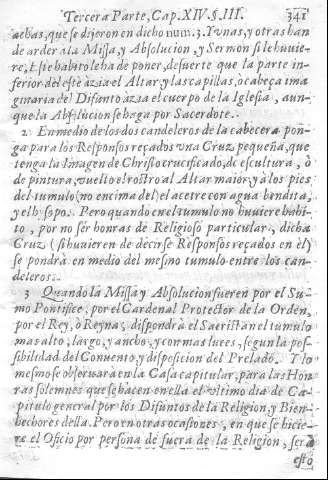 Tercera Parte, Cap. XIV. §. III. 341
achas, que se dijeron en dicho num. 3. Y unas, y otras han
de arder à la Missa, y Absolucion, y Sermon si le huvie-
re. Este habito le ha de poner, de suerte que la parte in-
ferior del este àzia el Altar, y las capillas, ò cabeça ima
ginaria del Difunto àzia el cuerpo de la Iglesia, aun-
que la Absolucion se haga por Sacerdote.
2 En medio de los dos candeleros de la cabecera pon-
ga para los Responsos reçados una Cruz pequeña, que
tenga la Imagen de Christo crucificado, de escultura, ò
de pintura, vuelto el rostro al Altar maior y à los pies
del tumulo (no encima del) el acetre con agua bendita,
y el hysopo. Pero quando en el tumulo no huviere habi-
to, por no ser honras de Religioso particular, dicha
Cruz (si huvieren de decirse Responsos reçados en èl)
se pondrà en medio del mesmo tumulo entre los can-
deleros.
3 Quando la Missa y Absolucion fueren por el Su-
mo Pontifice, por el Cardenal Protector de la Orden,
por el Rey, ò Reyna, dispondrà el Sacristan el tumulo
mas alto, largo, y ancho, y con mas luces, segun la pos-
sibilidad del Convento, y disposicion del Prelado. Y lo
mesmo se observarà en la Casa capitular, para las Hon
ras solemnes que se hacen en ella el ultimo dia de Ca-
pitulo general por los Difuntos de la Religion, y Bien-
hechores della. Pero en otras ocasiones, en que se hicie-
re el Oficio por persona de fuera de la Religion, serà
esto